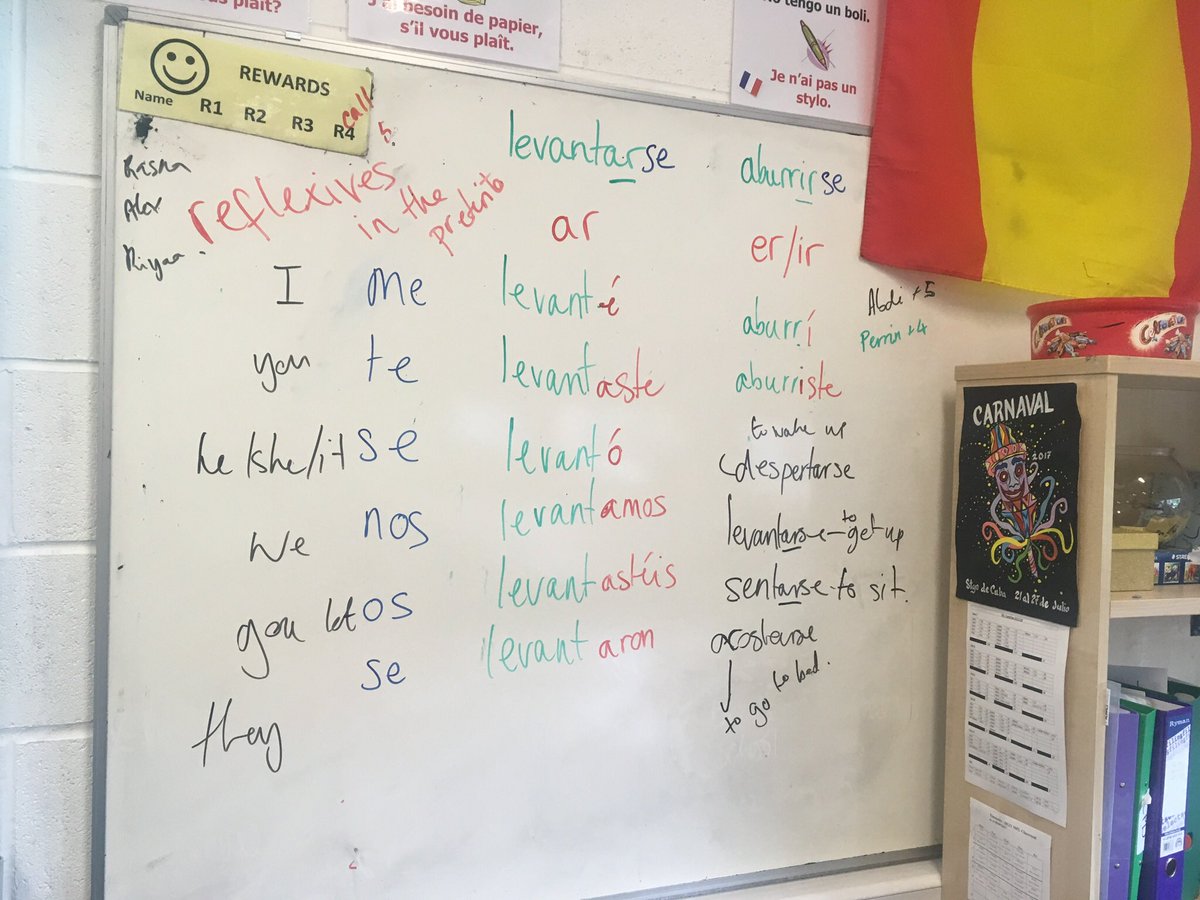 us plaît?
J'ai besoin de papier,
s'il vous plaît.
No tengo un boli.
Je n'ai pas un
stylo.
REWARDS
Name R1 R2 R3 R4
call
5.
Rasna
Alex
Riyaa
reflexives
in the
pretérito
levantarse
aburrirse
ar
er/ir
I me levanté aburrí
you te levantaste aburriste
he/she/it se levantó
we nos levantamos
you lot os levantastéis
they se levantaron
Abdi +5
Perrin +4
to wake up
despertarse
levantarse - to get up
sentarse - to sit.
acostarse
to go to bed.
CARNAVAL
2017
Stgo de Cuba 21 al 27 de Julio
Celebrations
Ryman